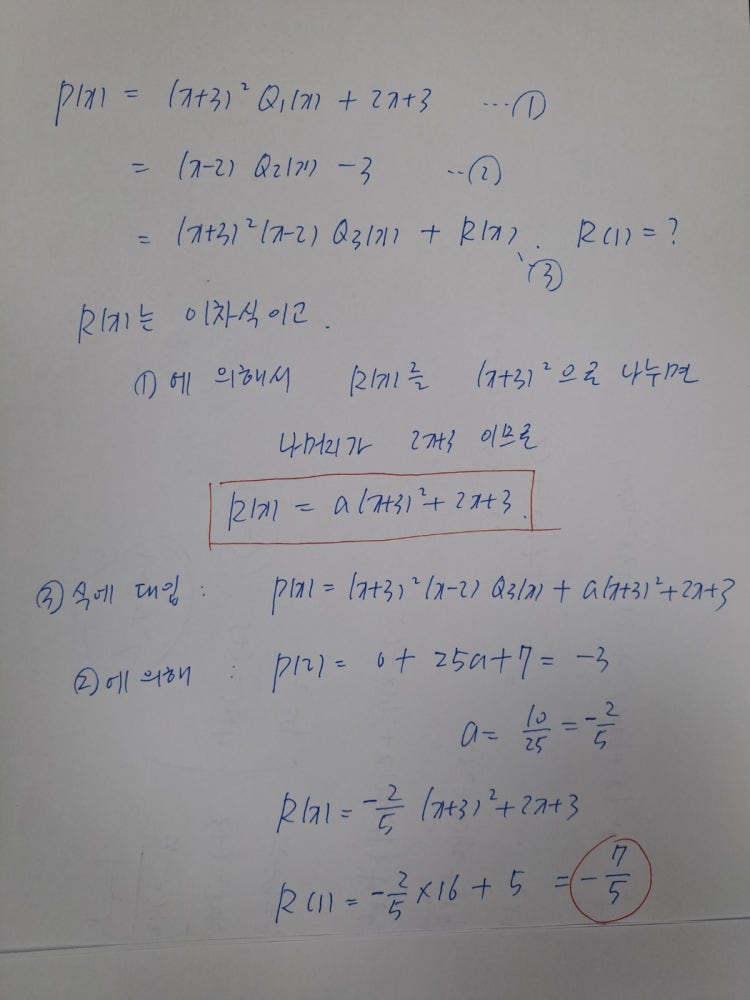 P(x) = (x+3)² Q₁(x) + 2x+3 ⋯①
= (x-2) Q₂(x) -3 ⋯②
= (x+3)²(x-2) Q₃(x) + R(x). R(1) = ?
⋯③
R(x)는 이차식이고.
①에 의해서 R(x)를 (x+3)²으로 나누면
나머지가 2x+3 이므로
R(x) = a(x+3)²+2x+3.
③식에 대입 : P(x) = (x+3)²(x-2) Q₃(x) + a(x+3)²+2x+3
②에 의해 : P(2) = 0 + 25a+7 = -3
a = 10/25 = -2/5
R(x) = -2/5 (x+3)²+2x+3
R(1) = -2/5 ×16 + 5 = -7/5